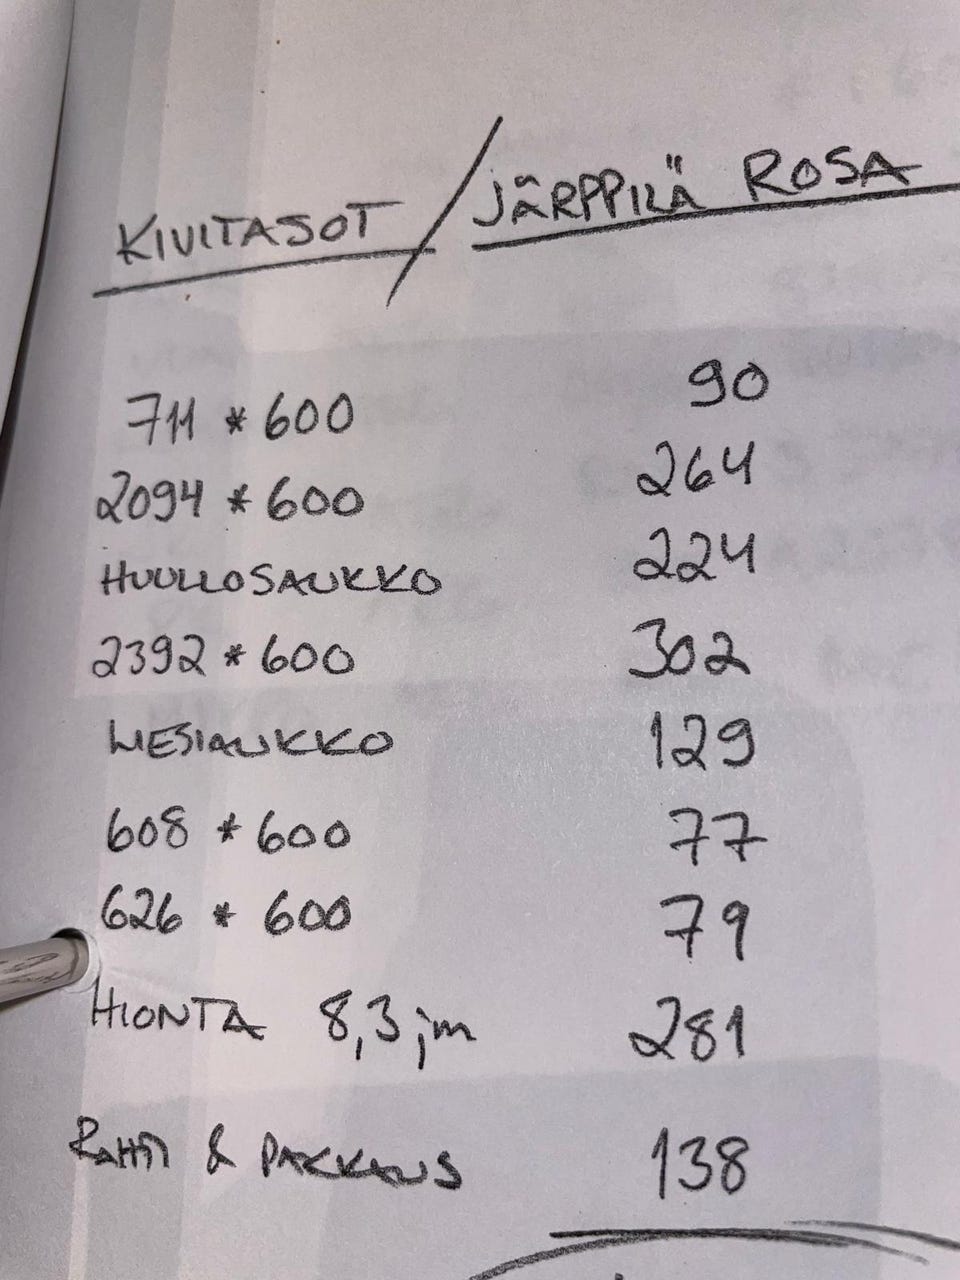 KIVITASOT / JÄRPPILÄ ROSA
711 * 600 90
2094 * 600 264
HUULLOSAUKKO 224
2392 * 600 302
LIESIAUKKO 129
608 * 600 77
626 * 600 79
HIONTA 8,3 jm 281
RAHTI & PAKKAUS 138